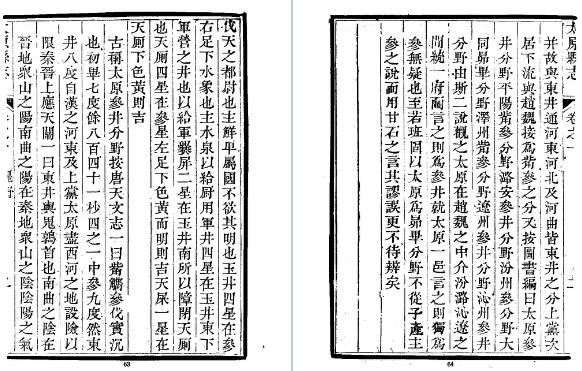 伐天之都尉也主鮮卑屬國不欲其明也玉井四星在參
右足下水象也主水泉以給厨用軍井四星在玉井東下
軍營之井也以給軍糧屏二星在玉井南所以障閉天厠
也天厠四星在參星左足下色黃而明則吉天屎一星在
天厠下色黃則吉
古稱太原參井分野按唐天文志一曰觜觿參伐實沉
也初畢七度餘八百四十一秒四之一中參九度然東
井八度自漢之河東及上黨太原盡西河之地設險以
限秦晉上應天關一曰東井輿鬼鶉首也南曲之陰在
晉地眾山之陽南曲之陽在秦地眾山之陰陰陽之氣
63
太原縣志
卷之一
并故與東井通河東河北及河曲皆東井之分上黨次
居下流與趙魏接為觜參之分又按圖書編曰太原參
井分野平陽觜參分野潞安參井分野汾州參分野大
同昴畢分野澤州觜參分野遼州參井分野沁州參井
分野由斯二說觀之太原在趙魏之中介汾潞沁遼之
間統一府而言之則為參井就太原一邑言之則獨為
參無疑也至若班固以太原為昴畢分野不從子產主
參之說而用甘石之言其謬誤更不待辨矣
64